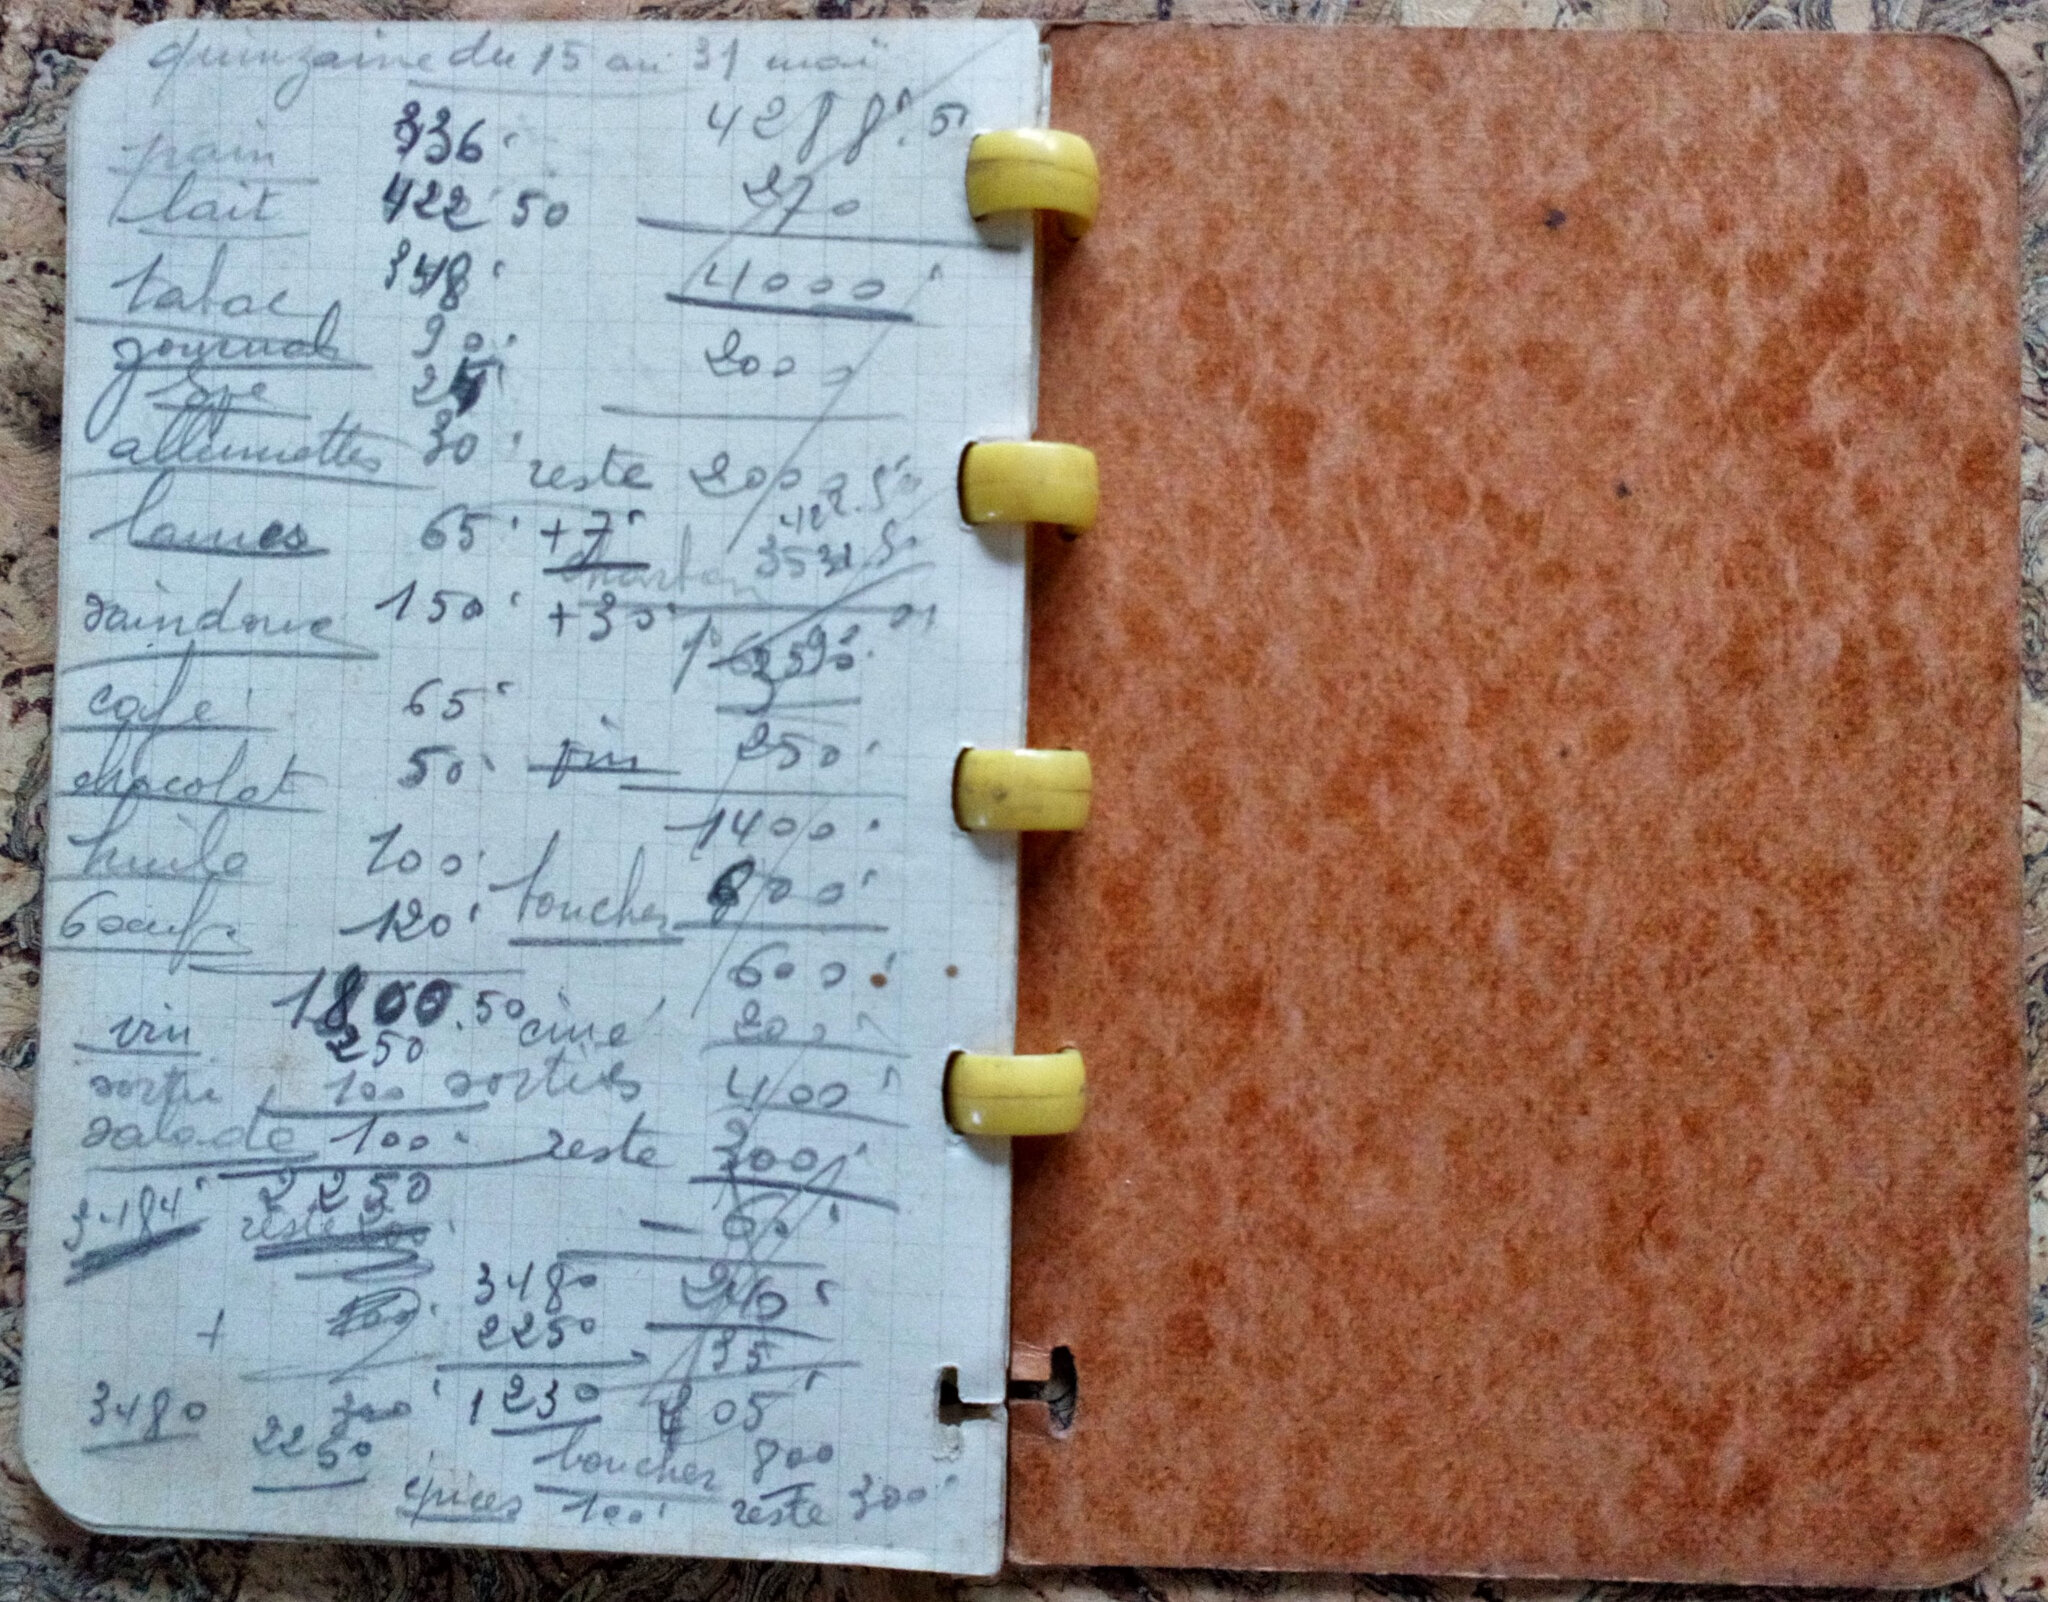 quinzaine du 15 au 31 mai
pain 336' 4288'.5
lait 422'50 270
tabac 348' 4000'
journal 90' 2000
gype 25'
allumettes 30' reste 200
422.50
lames 65' +7' 3531.50
saindoux 150' +30'
café 65'
chocolat 50' vin 250'
huile 100' 1400'
6 oeufs 120' boucher 800'
600'
1800.50 ciné 200
vin 250
sortie 100 sorties 400'
salade 100' reste 200'
3484' 2250
reste
60'
3480 240'
+ 2250 35
3480 300' 1230 205'
2250 boucher 800
épices 100' reste 300'